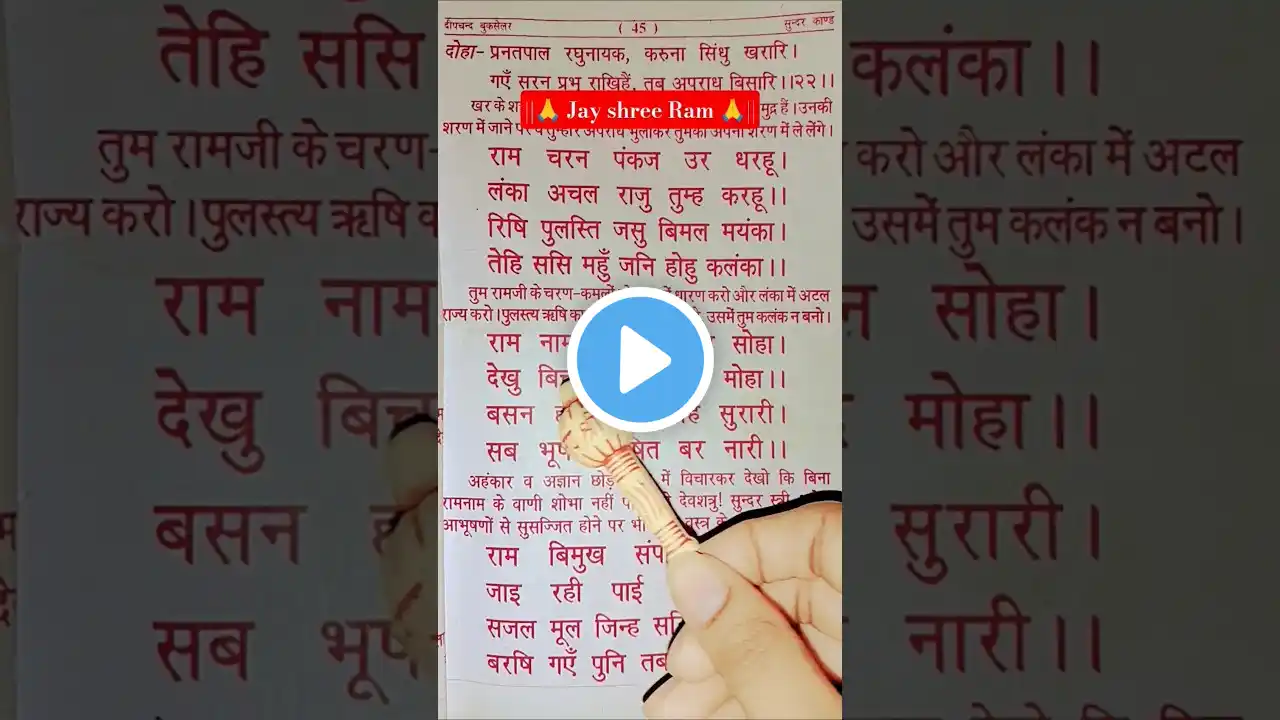 दीपचन्द बुकसेलर ( 45 ) सुन्दर काण्ड
दोहा- प्रनतपाल रघुनायक, करुना सिंधु खरारि।
गएँ सरन प्रभु राखिहैं, तब अपराध बिसारि।।२२।।
||🙏 Jay shree Ram 🙏||
खर के श मुद्र हैं। उनकी
शरण में जाने प तुम्हारे अपराध भुलाकर तुमको अपनी शरण में ले लेंगे।
राम चरन पंकज उर धरहू।
लंका अचल राजु तुम्ह करहू।।
रिषि पुलस्ति जसु बिमल मयंका।
तेहि ससि महुँ जनि होहु कलंका।।
तुम रामजी के चरण-कमलों धारण करो और लंका में अटल
राज्य करो।पुलस्त्य ऋषि क उसमें तुम कलंक न बनो।
राम नाम सोहा।
देखु बिच मोहा।।
बसन सुरारी।
सब भूष षित बर नारी।।
अहंकार व अज्ञान छोड़ में विचारकर देखो कि बिना
रामनाम के वाणी शोभा नहीं देवशत्रु! सुन्दर स्त्री
आभूषणों से सुसज्जित होने पर भी वस्त्र
राम बिमुख संप
जाइ रही पाई
सजल मूल जिन्ह सरि
बरषि गएँ पुनि तब